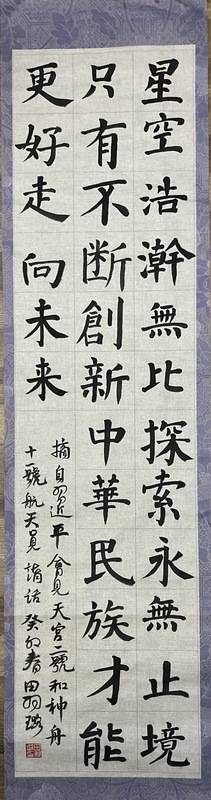 星空浩瀚無比探索永無止境
只有不断創新中華民族才能
更好走向未来
摘自習近平會見天宮二號和神舟
十一號航天員講話癸卯春田羽